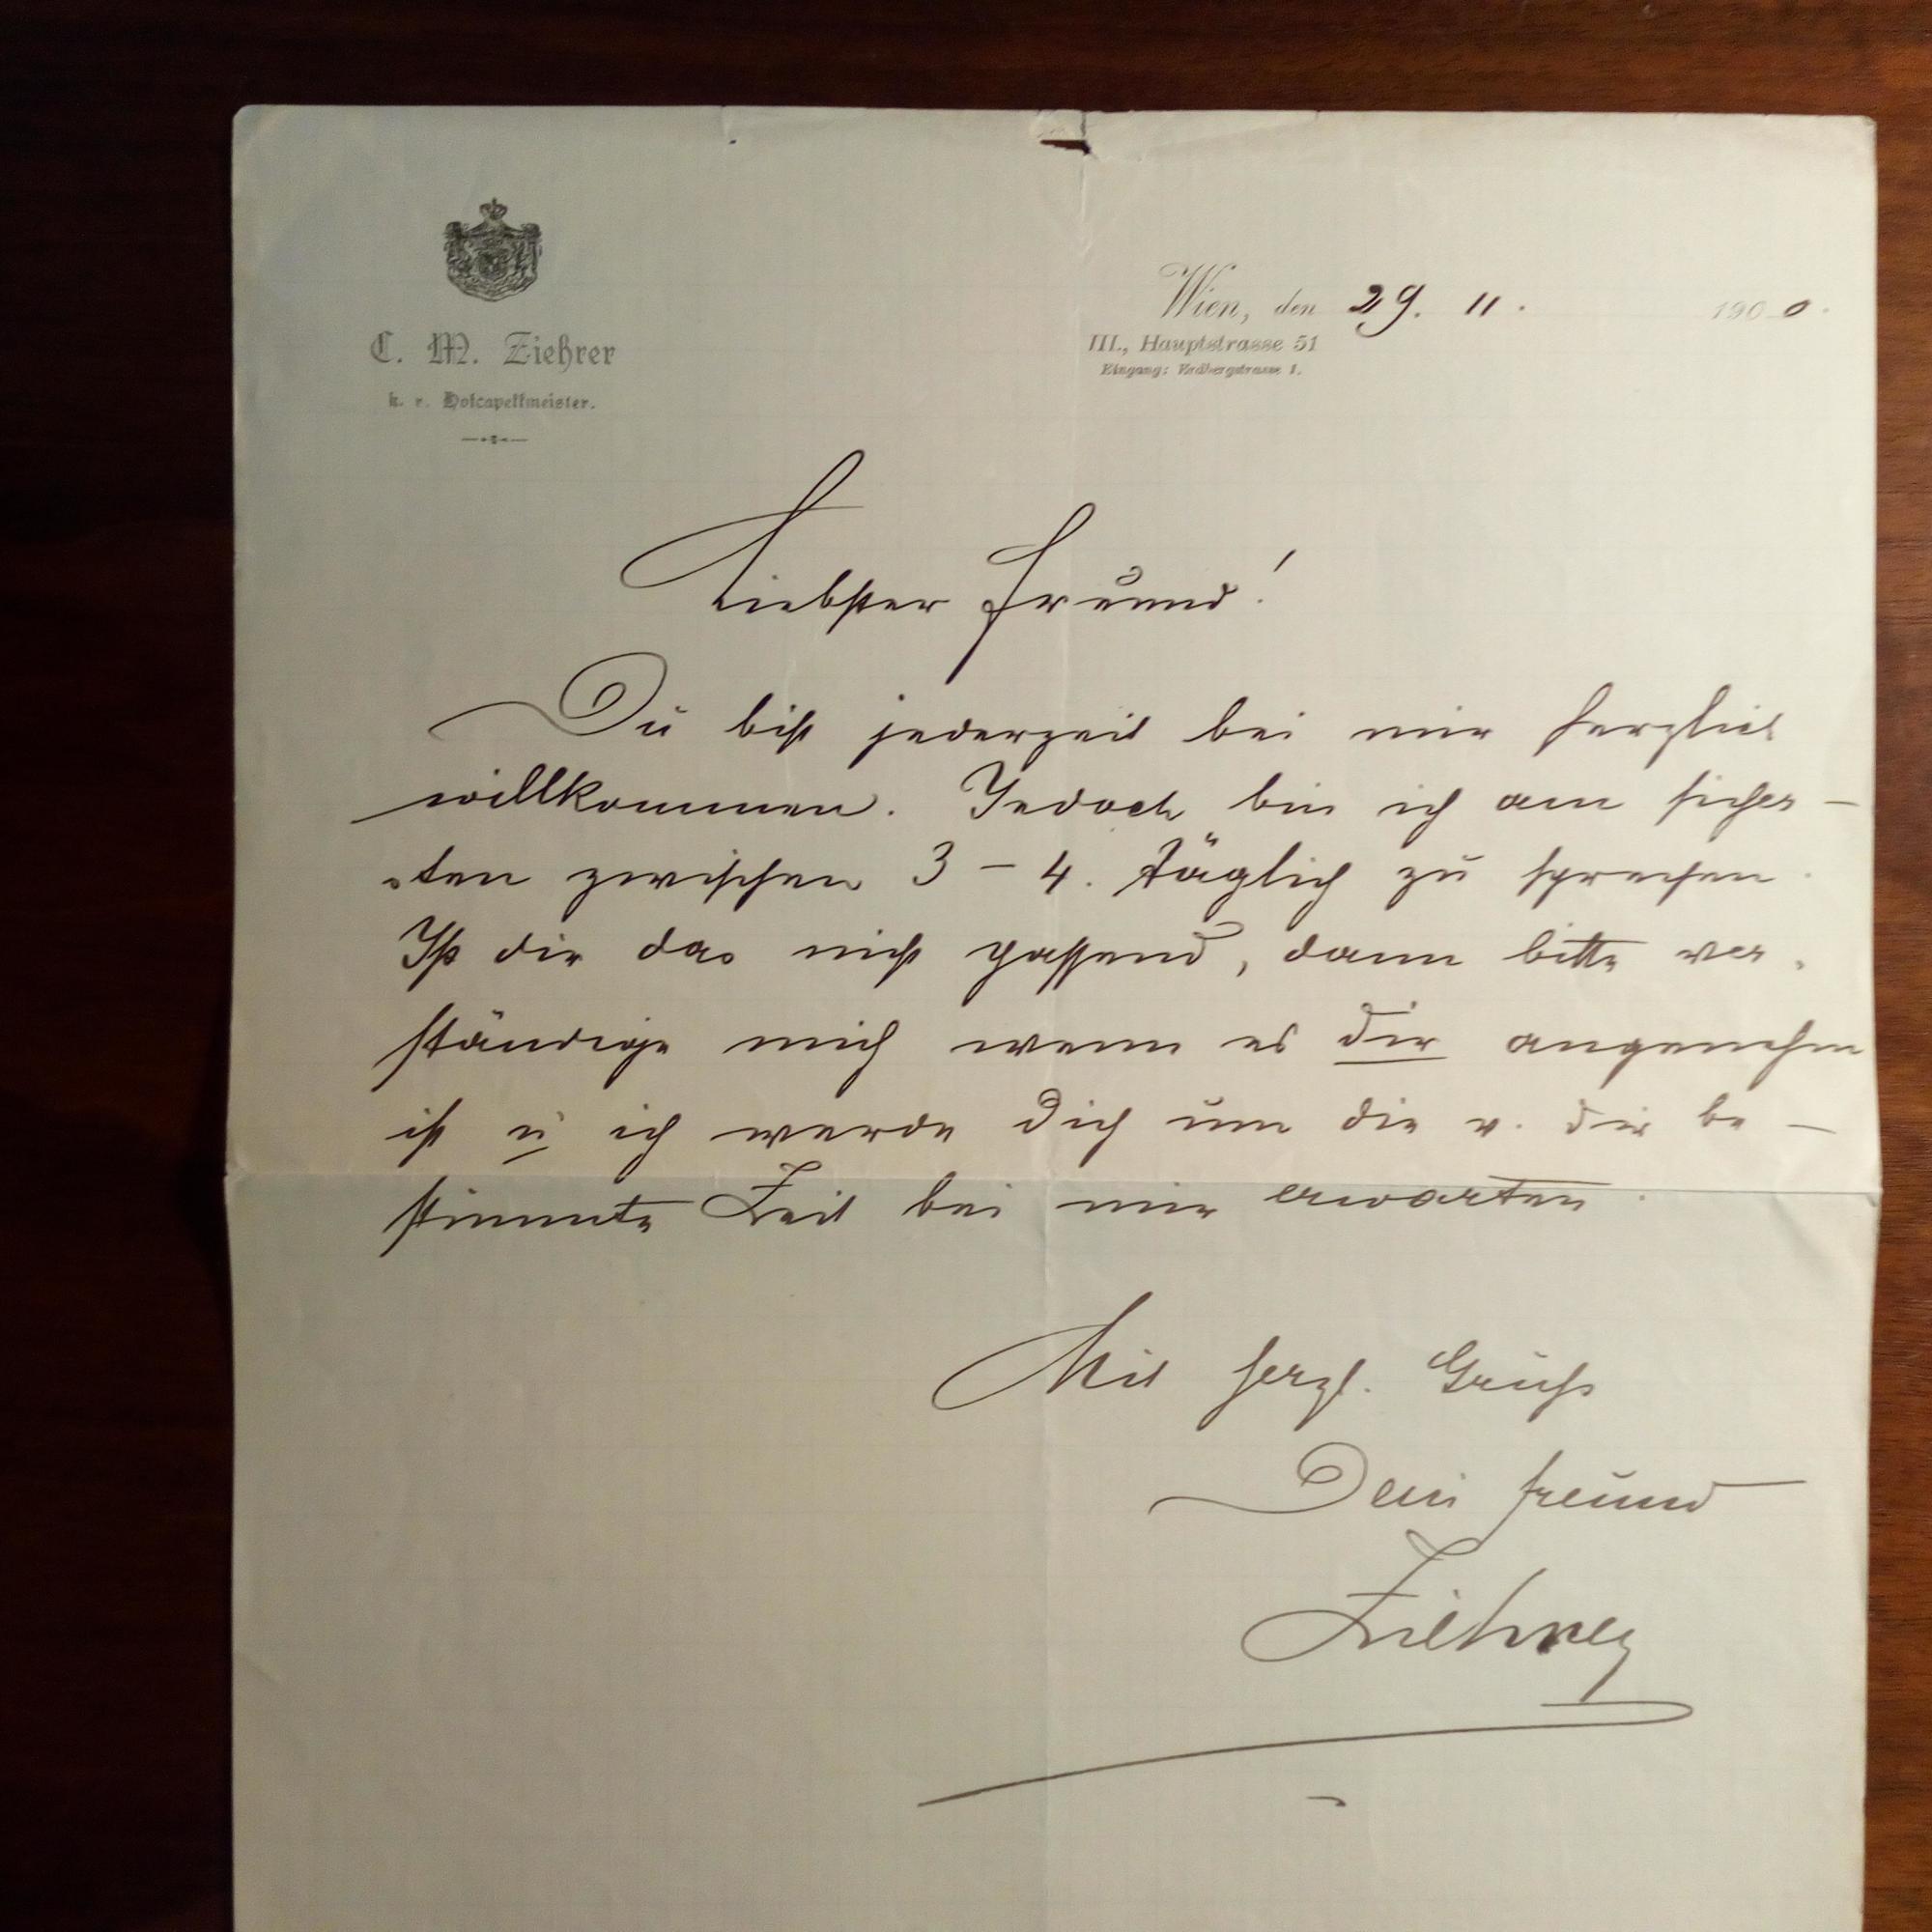 C. M. Ziehrer
k. r. Hofcapellmeister.
Wien, den 29. 11. 1900.
III., Hauptstrasse 51
Eingang:
Liebster Freund!
Du bist jederzeit bei mir herzlich
willkommen. Jedoch bin ich am sicher-
sten zwischen 3 – 4. täglich zu sprechen.
Ist dir das nicht passend, dann bitte ver-
ständige mich wenn es dir angenehm
ist u ich werde dich um die v. dir be-
stimmte Zeit bei mir erwarten.
Mit herzl. Gruß
Dein Freund
Ziehrer